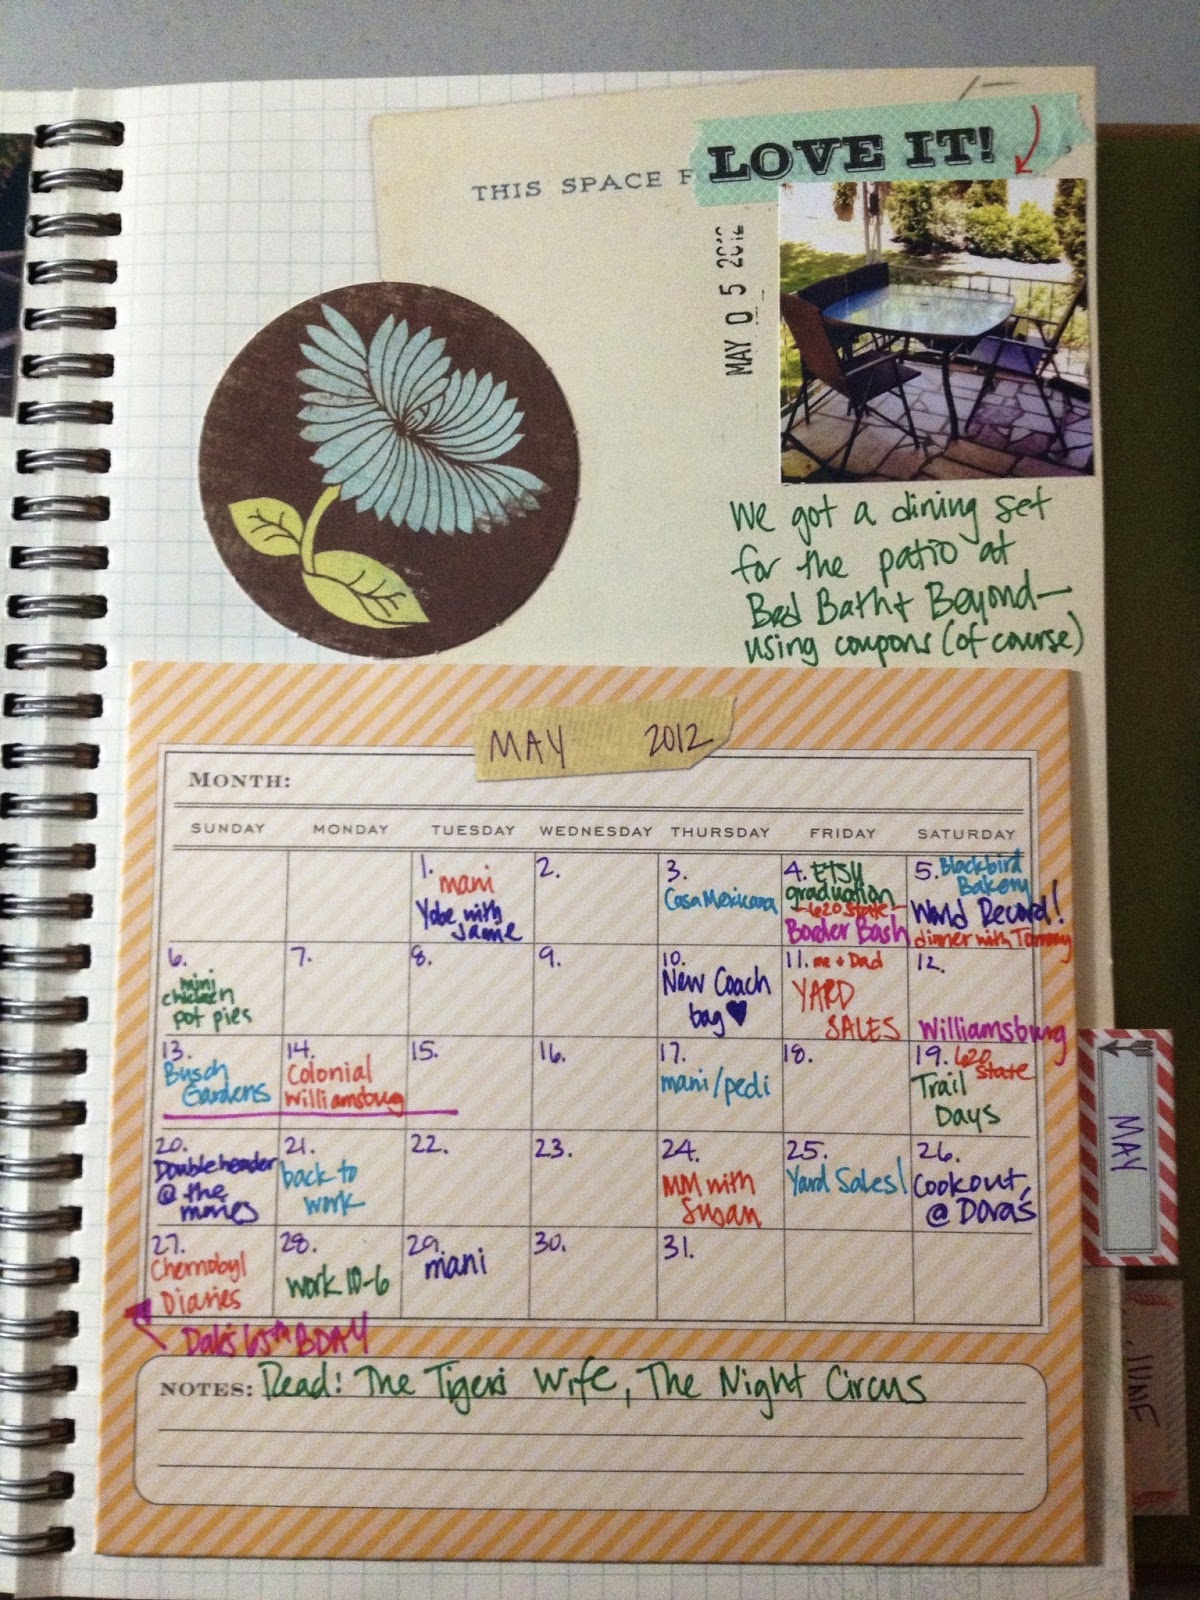 LOVE IT!
THIS SPACE F
MAY 05 2012
We got a dining set
for the patio at
Bed Bath + Beyond—
using coupons (of course)
MAY 2012
MONTH:
SUNDAY MONDAY TUESDAY WEDNESDAY THURSDAY FRIDAY SATURDAY
1. mani
Yobe with
Jamie
2.
3.
Casa Mexicana
4. ETSU
graduation
-620 State-
Border Bash
5. Blackbird
Bakery
World Record!
dinner with Tommy
6.
mini
chicken
pot pies
7.
8.
9.
10.
New Coach
bag ♥
11. me + Dad
YARD
SALES
12.
Williamsburg
13.
Busch
Gardens
14.
Colonial
Williamsburg
15.
16.
17.
mani/pedi
18.
19. 620
State
Trail
Days
20.
Doubleheader
@ the
movies
21.
back to
work
22.
23.
24.
MM with
Susan
25.
Yard Sales!
26.
Cookout
@ Dora's
27.
Chernobyl
Diaries
28.
work 10-6
29.
mani
30.
31.
65th BDAY
NOTES: Read: The Tiger's Wife, The Night Circus
MAY
JUNE